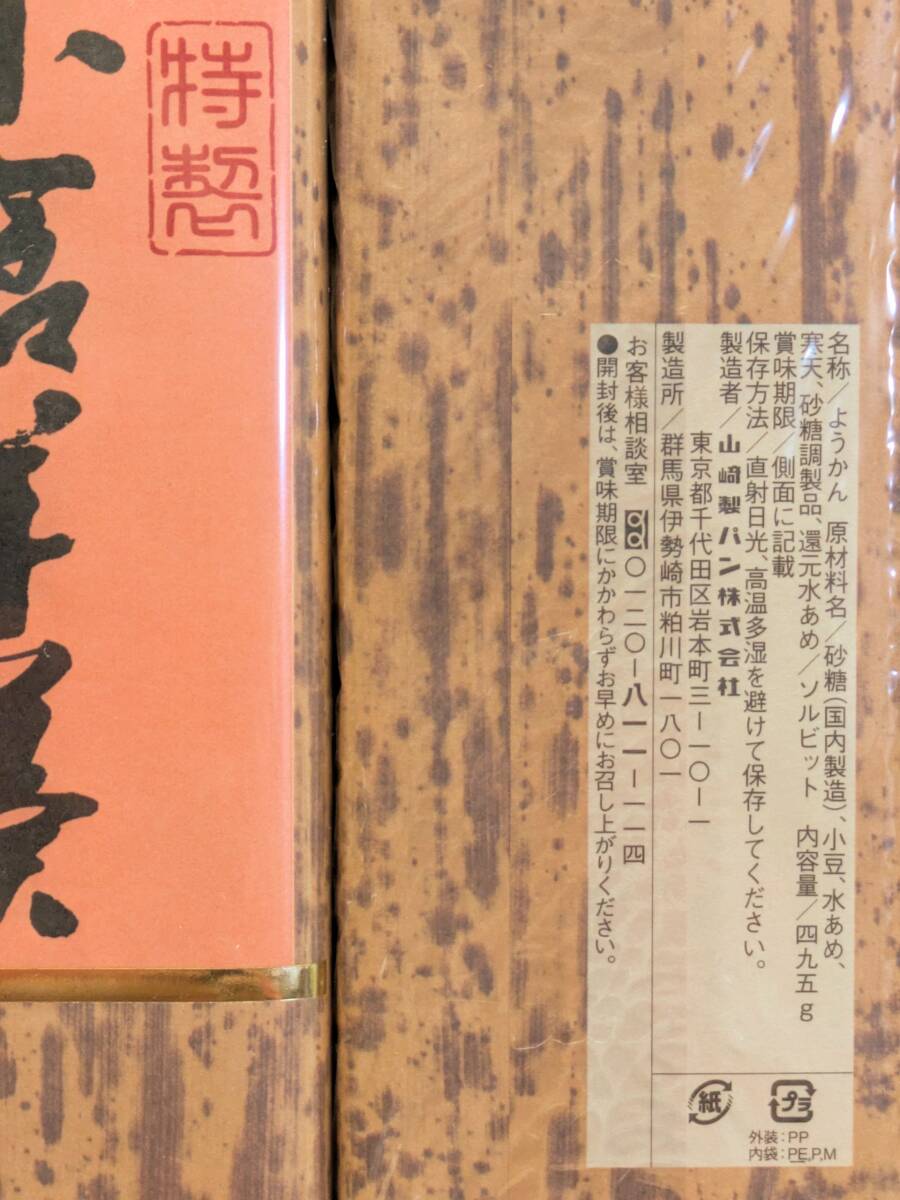 名称／ようかん 原材料名／砂糖(国内製造)、小豆、水あめ、
寒天、砂糖調製品、還元水あめ／ソルビット 内容量／四九五g
賞味期限／側面に記載
保存方法／直射日光、高温多湿を避けて保存してください。
製造者／山崎製パン株式会社
東京都千代田区岩本町三ー一〇ー一
製造所／群馬県伊勢崎市粕川町一八〇一
お客様相談室 〇一二〇ー八一一ー一一四
●開封後は、賞味期限にかかわらずお早めにお召し上がりください。
プラ
紙
外装：PP
内袋：PE,P,M
特製
小倉羊羹